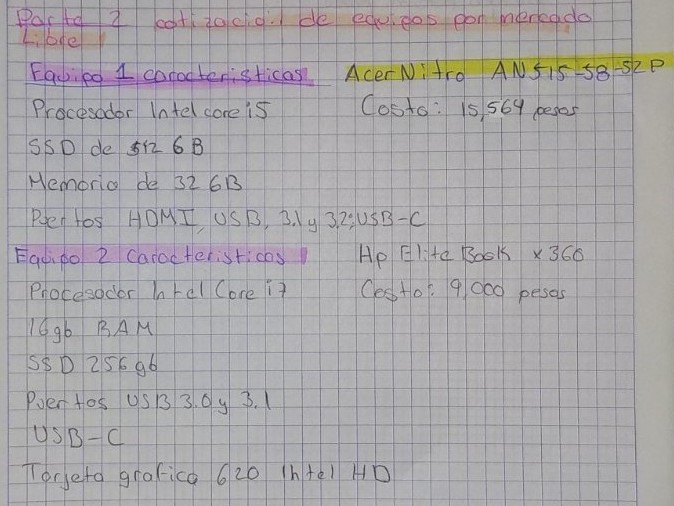 Parte 2 cotizacion de equipos por mercado
Libre
Equipo 1 caracteristicas Acer Nitro AN515-58-52P
Procesador Intel core i5 Costo: 15,564 pesos
SSD de 512 GB
Memoria de 32 GB
Puertos HDMI, USB, 3.1 y 3.2, USB-C
Equipo 2 Caracteristicas Hp Elite Book x360
Procesador Intel Core i7 Costo: 9,000 pesos
16gb RAM
SSD 256 gb
Puertos USB 3.0 y 3.1
USB-C
Tarjeta grafica 620 Intel HD